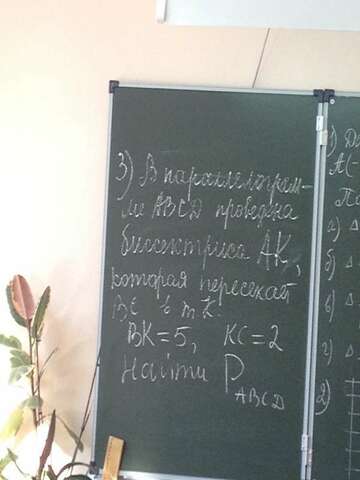 3) В параллелограм-
ме ABCD проведена
биссектриса AK,
которая пересекает
BC в т. K.
BK=5, KC=2
Найти P ABCD
1) Д
A(-
По
а) Δ
б) Δ
в) Δ
г) Δ
2)